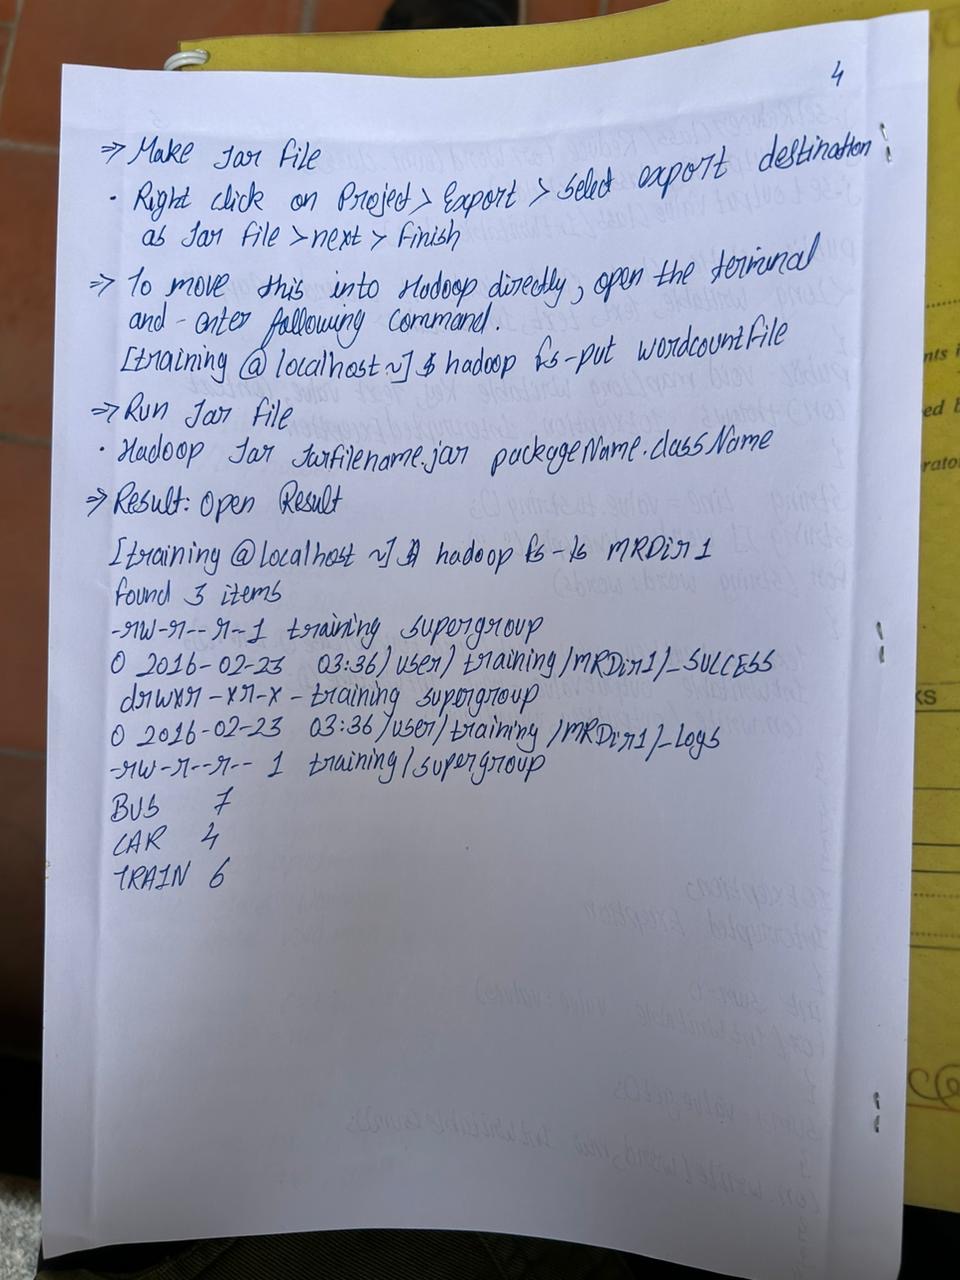 4
⇒ Make Jar file
• Right click on Project > Export > Select export destination
as Jar file > next > finish
⇒ To move this into Hadoop directly, open the terminal
and - enter following command.
[training @ localhost ~] $ hadoop fs -put wordcountfile
⇒ Run Jar file
• Hadoop Jar Jarfilename.jar packageName.className
⇒ Result: Open Result
[training @ localhost ~] $ hadoop fs -ls MRDir1
found 3 items
-rw-r--r--1 training supergroup
0 2016-02-23 03:36/user/training/MRDir1/_SUCCESS
drwxr-xr-x - training supergroup
0 2016-02-23 03:36/user/training/MRDir1/_Logs
-rw-r--r-- 1 training/supergroup
BUS 7
CAR 4
TRAIN 6
nts i
ed b
rator
KS